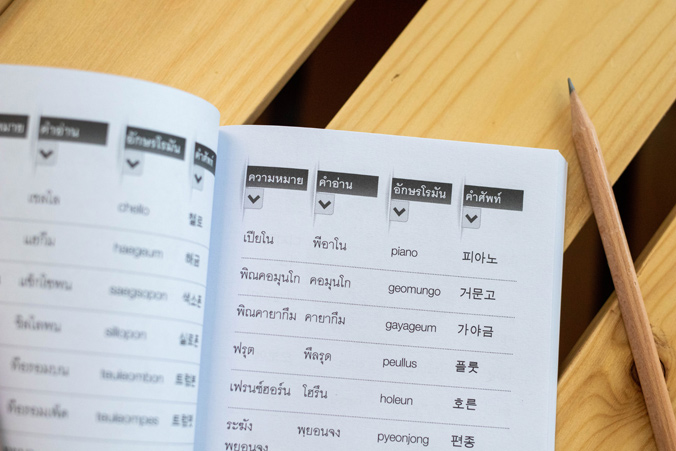 คำอ่าน อักษรโรมัน คำศัพท์
เชลโล chello 첼로
แฮกึม haegeum 해금
แซ็กโซพน saegsopon 색소폰
ซิลโลพน sillopon 실로폰
ความหมาย คำอ่าน อักษรโรมัน คำศัพท์
เปียโน พีอาโน piano 피아노
พิณคอมุนโก คอมุนโก geomungo 거문고
พิณคายากึม คายากึม gayageum 가야금
ฟรุต พึลรุด peullus 플룻
เฟรนซ์ฮอร์น โฮรึน holeun 호른
ระฆัง
พยอนจง พฺยอนจง pyeonjong 편종